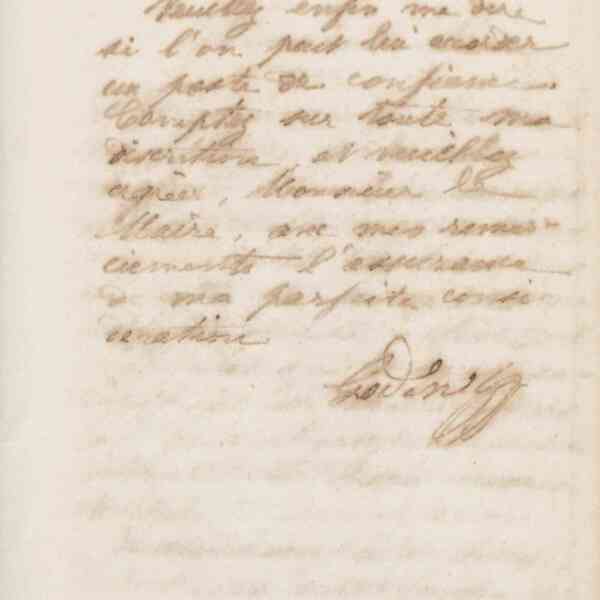 Veuillez enfin me dire
si l'on peut lui accorder
un poste de confiance.
Comptez sur toute ma
discrétion, et veuillez
agréer, Monsieur le
Maire, avec mes remer-
ciements l'assurance
de ma parfaite consi
dération
Godin